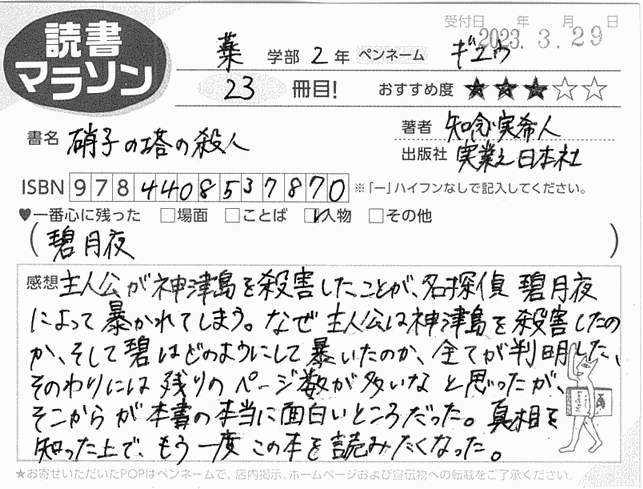 読書
マラソン
受付日 年 月 日
2023.3.29
薬 学部 2年 ペンネーム ギユウ
23 冊目! おすすめ度 ★★★☆☆
書名 硝子の塔の殺人
著者 知念実希人
出版社 実業之日本社
ISBN 9784408537870 ※「ー」ハイフンなしで記入してください。
♥一番心に残った □場面 □ことば ☑人物 □その他
(碧月夜)
感想 主人公が神津島を殺害したことが、名探偵 碧月夜
によって暴かれてしまう。なぜ主人公は神津島を殺害したの
か、そして碧はどのようにして暴いたのか、全てが判明した。
そのわりには残りのページ数が多いな と思ったが、
そこからが本書の本当に面白いところだった。真相を
知った上で、もう一度この本を読みたくなった。
★お寄せいただいたPOPはペンネームで、店内掲示、ホームページおよび宣伝物への転載をご了承ください。